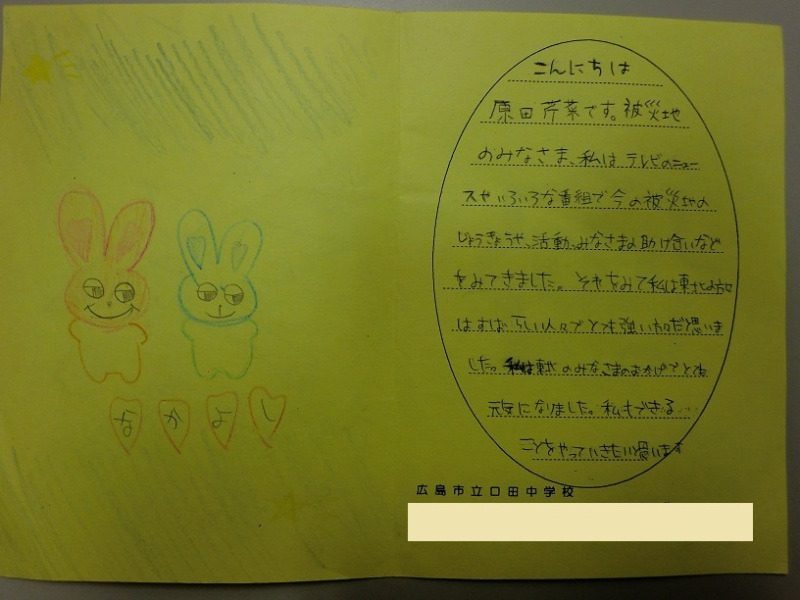 なかよし
こんにちは
原田芹菜です。被災地
のみなさま、私はテレビのニュー
スやいろいろな番組で今の被災地の
じょうきょうや、活動、みなさまの助け合いなど
をみてきました。それをみて私は東北の方
はすばらしい人々でとても強い方だと思いま
した。私は東北のみなさまのおかげでとても
元気になりました。私もできる…
ことをやっていきたい思います
広島市立口田中学校